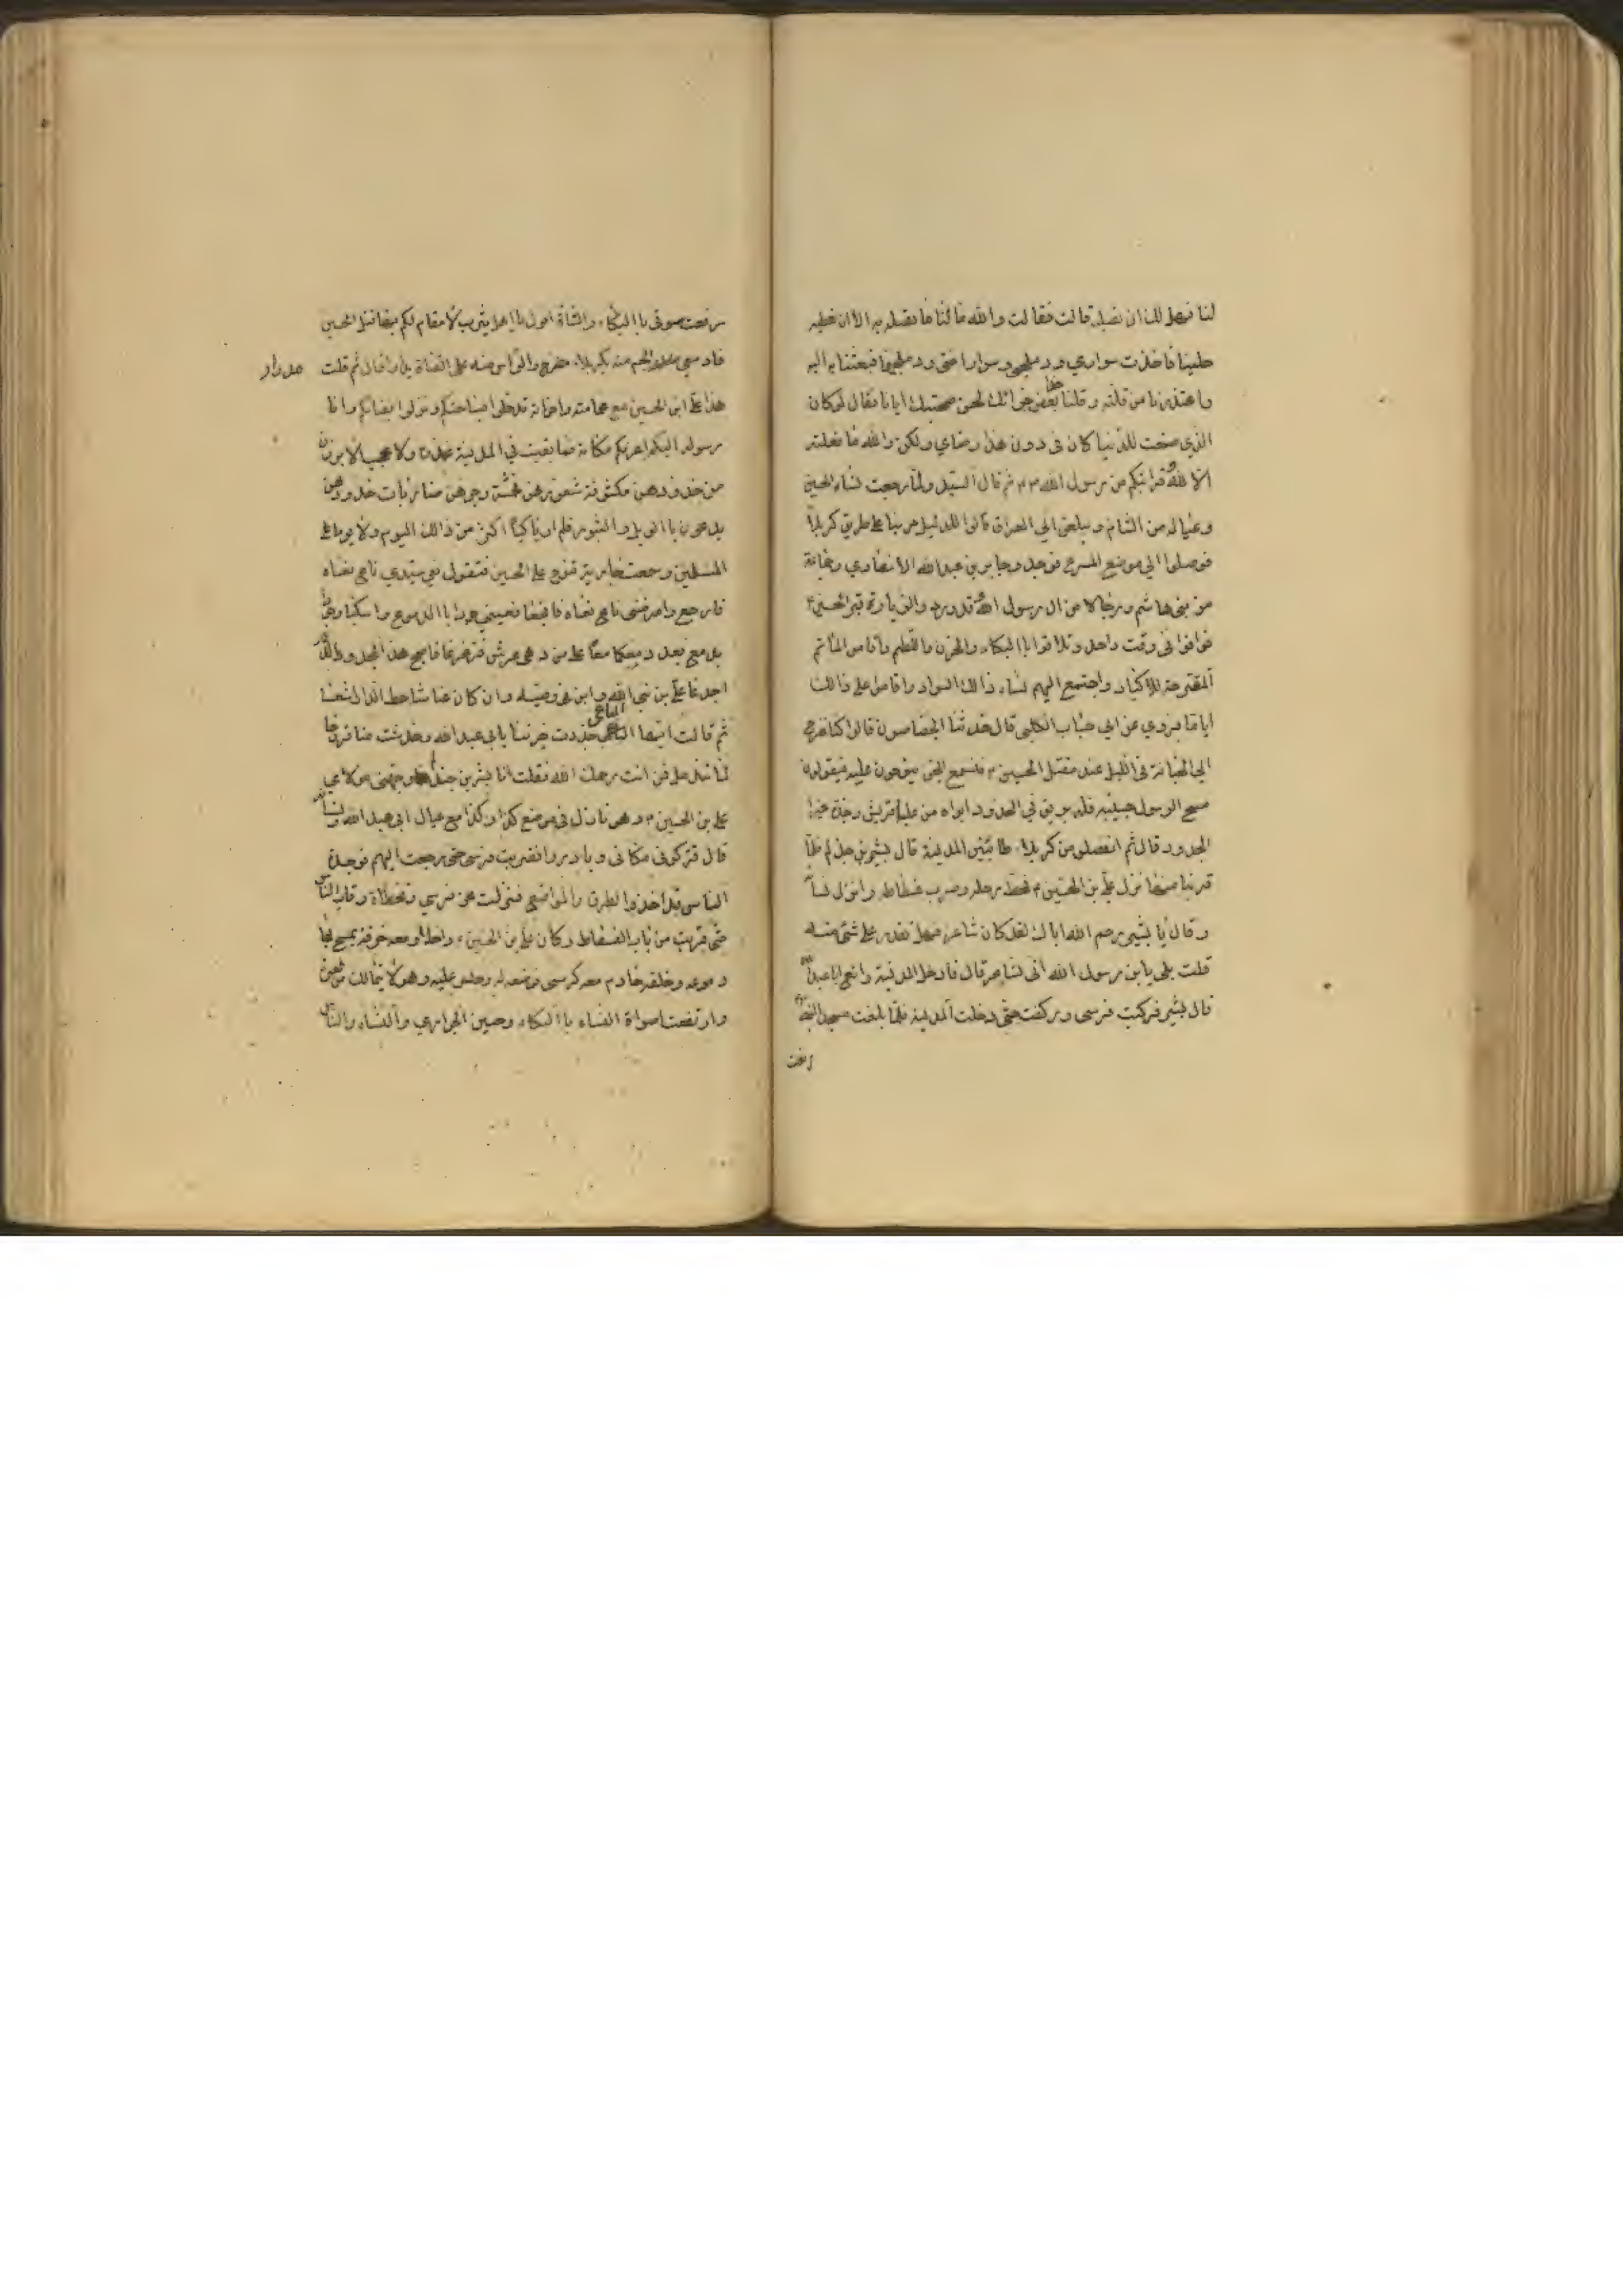 لنا فهل لك ان نصله قالت فقالت والله ما لنا ما نصله به الا ان نعطيه
حلينا فاخذت سواري ودملجي وسوار اختي ودملجها فبعثنا به اليه
واعتذرنا من قلته وقلنا بعض جزائك لحسن صحبتك ايانا فقال لو كان
الذي صنعت للدنيا كان في دون هذا رضاي ولكن والله ما فعلته
الا لله وقرابتكم من رسول الله ثم قال السيد ولما رجعت نساء الحسين
وعياله من الشام وبلغن الى العراق قالوا للدليل مر بنا على طريق كربلا
فوصلوا الي موضع المصرع فوجدوا جابر بن عبد الله الانصاري وجماعة
من بني هاشم ورجالا من ال رسول الله قد وردوا لزيارة قبر الحسين
فوافوا في وقت واحد وتلاقوا باالبكاء والحزن واللطم واقاموا المأتم
المقرحة للاكباد واجتمع اليهم نساء ذالك السواد واقاموا على ذالك
اياما فروي عن ابي حباب الكلبي قال حدثنا الجصاصون قالوا كنا نخرج
الي الجبانة في الليل عند مقتل الحسين فنسمع الجن ينوحون عليه فيقولون
مسح الرسول جبينه فله بريق في الخدود ابواه من عليا قريش وجده خير
الجدود قال ثم انفصلوا من كربلا طالبين المدينة قال بشير بن جذلم فلما
قربنا منها نزل علي بن الحسين فحط رحله وضرب فسطاطه وانزل نساءه
وقال يا بشير رحم الله اباك لقد كان شاعرا فهل تقدر على شئ منه
قلت بلى يابن رسول الله اني لشاعر قال فادخل المدينة وانع ابا عبد الله
قال بشير فركبت فرسي وركضت حتى دخلت المدينة فلما بلغت مسجد النبي
رفعت
رفعت صوتي باالبكاء وانشأت اقول يا اهل يثرب لا مقام لكم بها قتل الحسين
فادمعي مدرار الجسم منه بكربلا مضرج والراس منه على القناة يدار قال ثم قلت
مدرار
هذا علي ابن الحسين مع عماته واخواته قد حلوا بساحتكم ونزلوا بفنائكم وانا
رسوله اليكم اعرفكم مكانه فما بقيت في المدينة مخدرة ولا محجبة الا برزن
من خدورهن مكشوفة شعورهن مخمشة وجوههن ضاربات خدودهن
يدعون باالويل والثبور فلم ار باكيا اكثر من ذالك اليوم ولا يوما على
المسلمين وسمعت جارية تنوح على الحسين فتقول نعى سيدي ناع نعاه
فاوجع وامرضني ناع نعاه فافجعا فعيني جودا باالدموع واسكبا وجودا
بدمع بعد دمعكما معا على من دهى عرش فزعزعا فاصبح هذا المجد والدين
اجدعا على بن نبي الله وابن وصيه وان كان عنا شاحط الدار اشسعا
ثم قالت ايها الناعي جددت حزننا بابي عبد الله وخدشت منا قروحا
لما تندمل فمن انت رحمك الله فقلت انا بشير بن جذلم وجهني مولاي
علي بن الحسين وهو نازل في موضع كذا وكذا مع عيال ابي عبد الله ونسائه
قال فتركوني مكاني وبادروا فضربت فرسي حتى رجعت اليهم فوجدت
الناس قد اخذوا الطرق والمواضع فنزلت عن فرسي وتخطأة رقاب الناس
حتى قربت من باب الفسطاط وكان علي بن الحسين داخلا ومعه خرقة يمسح بها
دموعه وخلفه خادم معه كرسي فوضعه له وجلس عليه وهو لا يتمالك من العبرة
وارتفعت اصواة النساء باالبكاء وحنين الجواري والنساء والناس